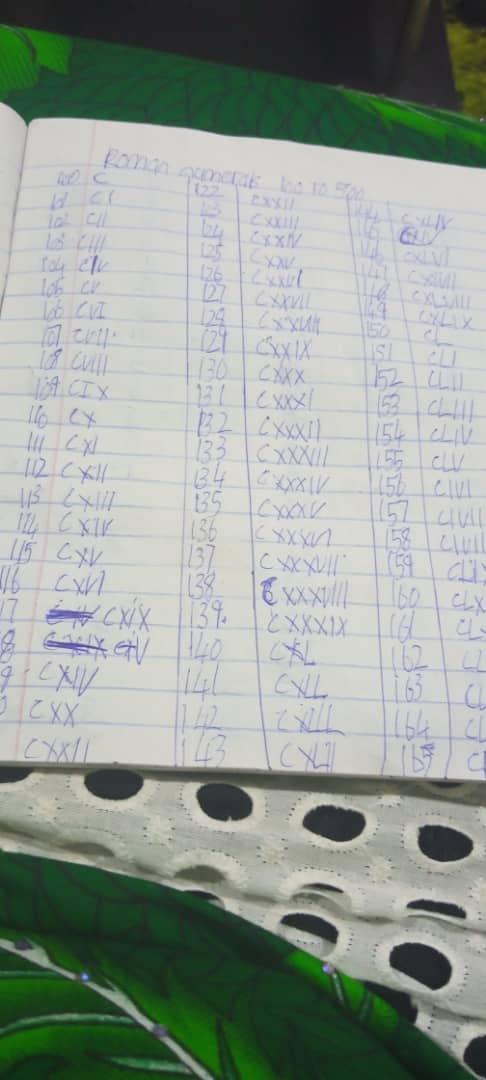 Roman numerals 100 to 500
100 C
101 CI
102 CII
103 CIII
104 CIV
105 CV
106 CVI
107 CVII
108 CVIII
109 CIX
110 CX
111 CXI
112 CXII
113 CXIII
114 CXIV
115 CXV
116 CXVI
17 CXIX
8 CIV
9 CXIV
CXX
CXXII
122 CXXII
123 CXXIII
124 CXXIV
125 CXXV
126 CXXVI
127 CXXVII
128 CXXVIII
129 CXXIX
130 CXXX
131 CXXXI
132 CXXXII
133 CXXXIII
134 CXXXIV
135 CXXXV
136 CXXXVI
137 CXXXVII
138 CXXXVIII
139 CXXXIX
140 CXL
141 CXLI
142 CXLII
143 CXLII
144 CXLIV
145
146 CXLVI
147 CXLVII
148 CXLVIII
149 CXLIX
150 CL
151 CLI
152 CLII
153 CLIII
154 CLIV
155 CLV
156 CLVI
157 CLVII
158 CLVII
159 CLIX
160 CLX
161 CL
162 CL
163 CL
164 CL
165 C